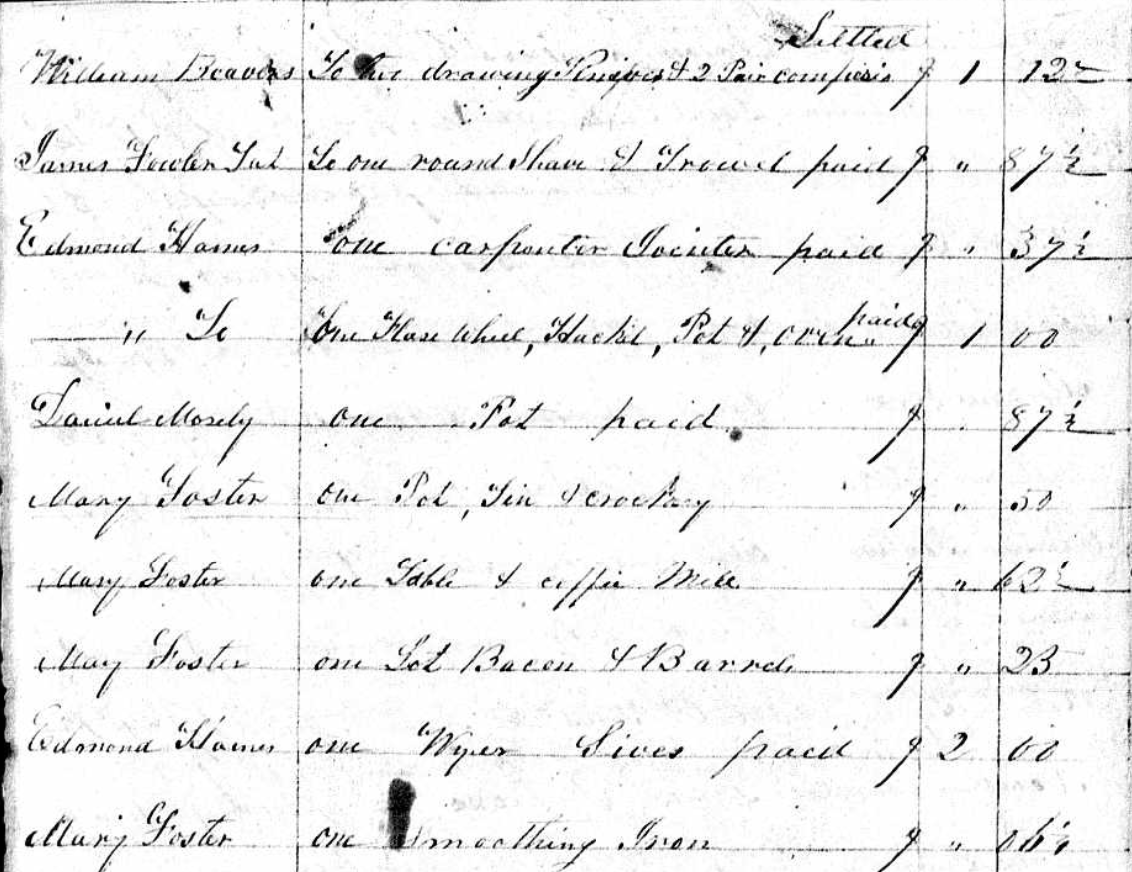 Settled
William Beavers To two drawing Knives & 2 Pair compesis $ 1 12½
James Fowler To one round Shave & Trowel paid $ " 87½
Edmond Hames one carpenter Jointer paid $ " 37½
" To one Flax Wheel, Hackel, Pot &, oven paid $ 1 00
Daniel Mosely one Pot paid $ " 87½
Mary Foster one Pot, Tin & crockry $ " 50
Mary Foster one Table & coffie Mill $ " 62½
May Foster one Lot Bacon & Barrels $ " 25
Edmond Hames one Wyer Sives paid $ 2 00
Mary Foster one Smoothing Iron $ " 06¼